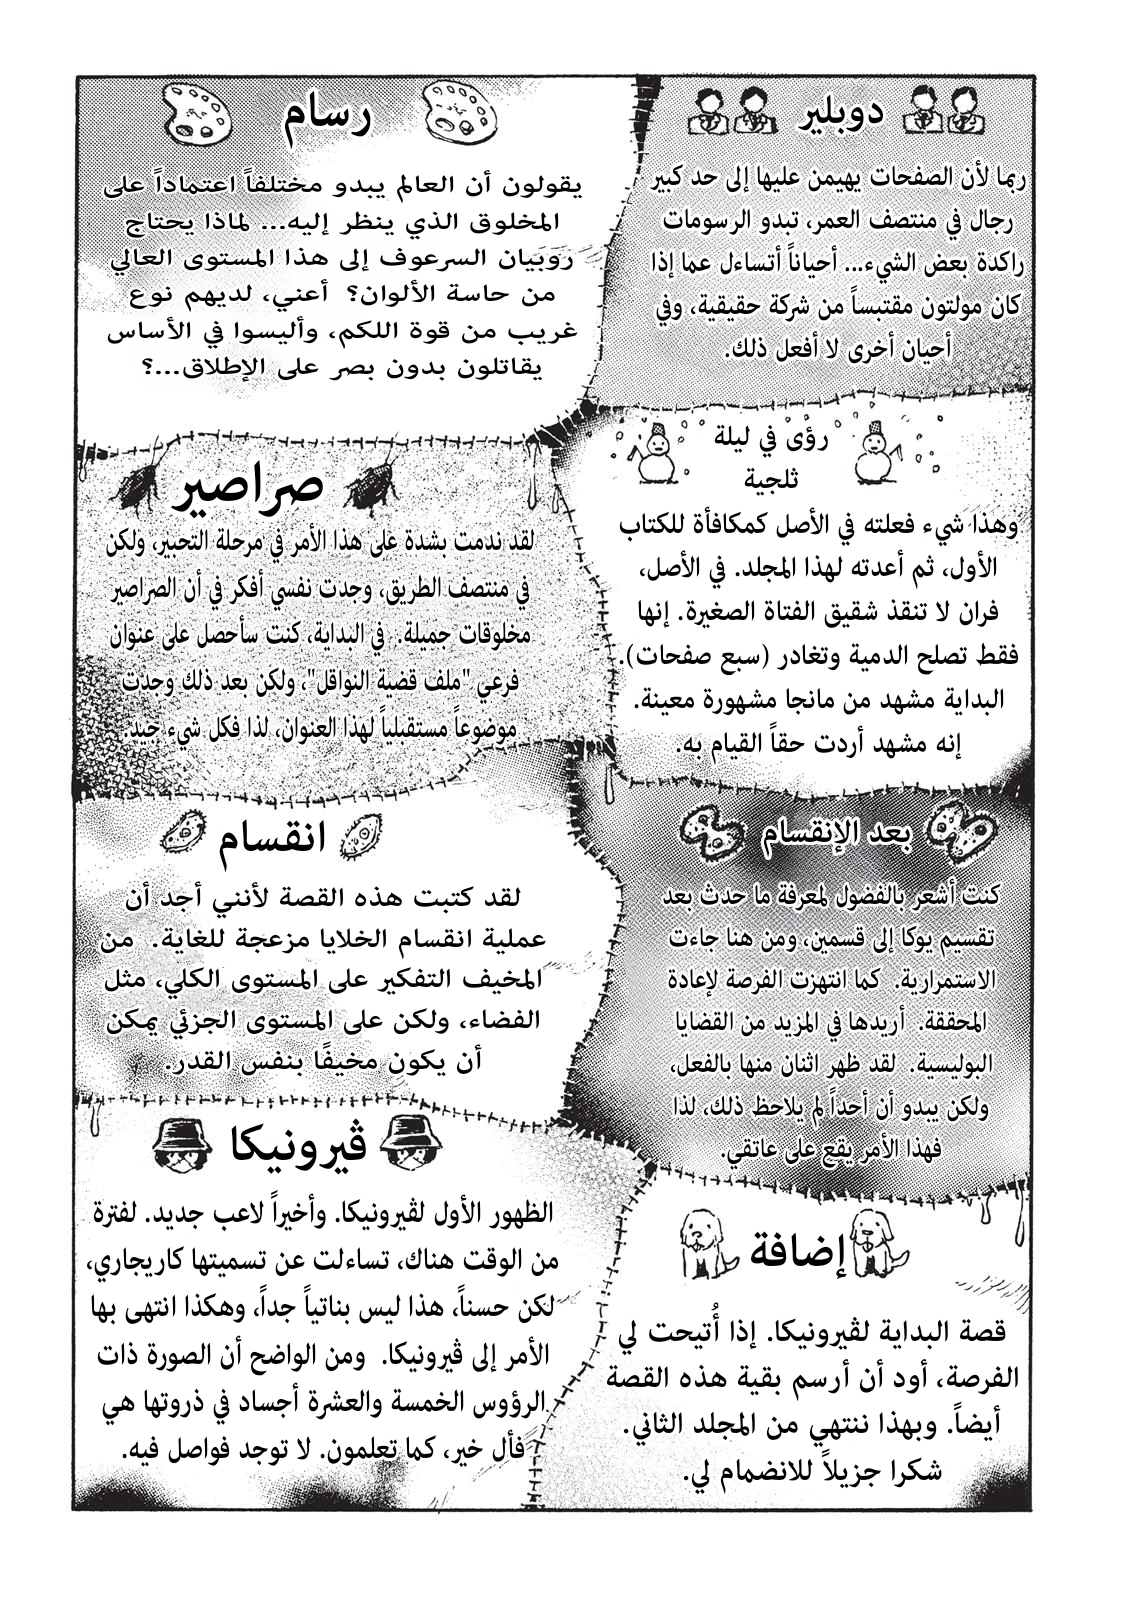 دوبلير
ربما لأن الصفحات يهيمن عليها إلى حد كبير
رجال في منتصف العمر، تبدو الرسومات
راكدة بعض الشيء... أحياناً أتساءل عما إذا
كان مولتون مقتبساً من شركة حقيقية، وفي
أحيان أخرى لا أفعل ذلك.
رسام
يقولون أن العالم يبدو مختلفاً اعتماداً على
المخلوق الذي ينظر إليه... لماذا يحتاج
رَوَبَيان السرعوف إلى هذا المستوى العالي
من حاسة الألوان؟ أعني، لديهم نوع
غريب من قوة اللكم، وأليسوا في الأساس
يقاتلون بدون بصر على الإطلاق...؟
رؤى في ليلة
ثلجية
وهذا شيء فعلته في الأصل كمكافأة للكتاب
الأول، ثم أعدته لهذا المجلد. في الأصل،
فران لا تنقذ شقيق الفتاة الصغيرة. إنها
فقط تصلح الدمية وتغادر (سبع صفحات).
البداية مشهد من مانجا مشهورة معينة.
إنه مشهد أردت حقاً القيام به.
صراصير
لقد ندمت بشدة على هذا الأمر في مرحلة التحبير، ولكن
في منتصف الطريق، وجدت نفسي أفكر في أن الصراصير
مخلوقات جميلة. في البداية، كنت سأحصل على عنوان
فرعي "ملف قضية النواقل"، ولكن بعد ذلك وجدت
موضوعاً مستقبلياً لهذا العنوان، لذا فكل شيء جيد.
بعد الإنقسام
كنت أشعر بالفضول لمعرفة ما حدث بعد
تقسيم يوكا إلى قسمين، ومن هنا جاءت
الاستمرارية. كما انتهزت الفرصة لإعادة
المحققة. أريدها في المزيد من القضايا
البوليسية. لقد ظهر اثنان منها بالفعل،
ولكن يبدو أن أحداً لم يلاحظ ذلك، لذا
فهذا الأمر يقع على عاتقي.
انقسام
لقد كتبت هذه القصة لأنني أجد أن
عملية انقسام الخلايا مزعجة للغاية. من
المخيف التفكير على المستوى الكلي، مثل
الفضاء، ولكن على المستوى الجزئي يمكن
أن يكون مخيفًا بنفس القدر.
إضافة
قصة البداية لڤيرونيكا. إذا أُتيحت لي
الفرصة، أود أن أرسم بقية هذه القصة
أيضاً. وبهذا ننتهي من المجلد الثاني.
شكرا جزيلاً للانضمام لي.
ڤيرونيكا
الظهور الأول لڤيرونيكا. وأخيراً لاعب جديد. لفترة
من الوقت هناك، تساءلت عن تسميتها كاريجاري،
لكن حسناً، هذا ليس بناتياً جداً، وهكذا انتهى بها
الأمر إلى ڤيرونيكا. ومن الواضح أن الصورة ذات
الرؤوس الخمسة والعشرة أجساد في ذروتها هي
فأل خير، كما تعلمون. لا توجد فواصل فيه.